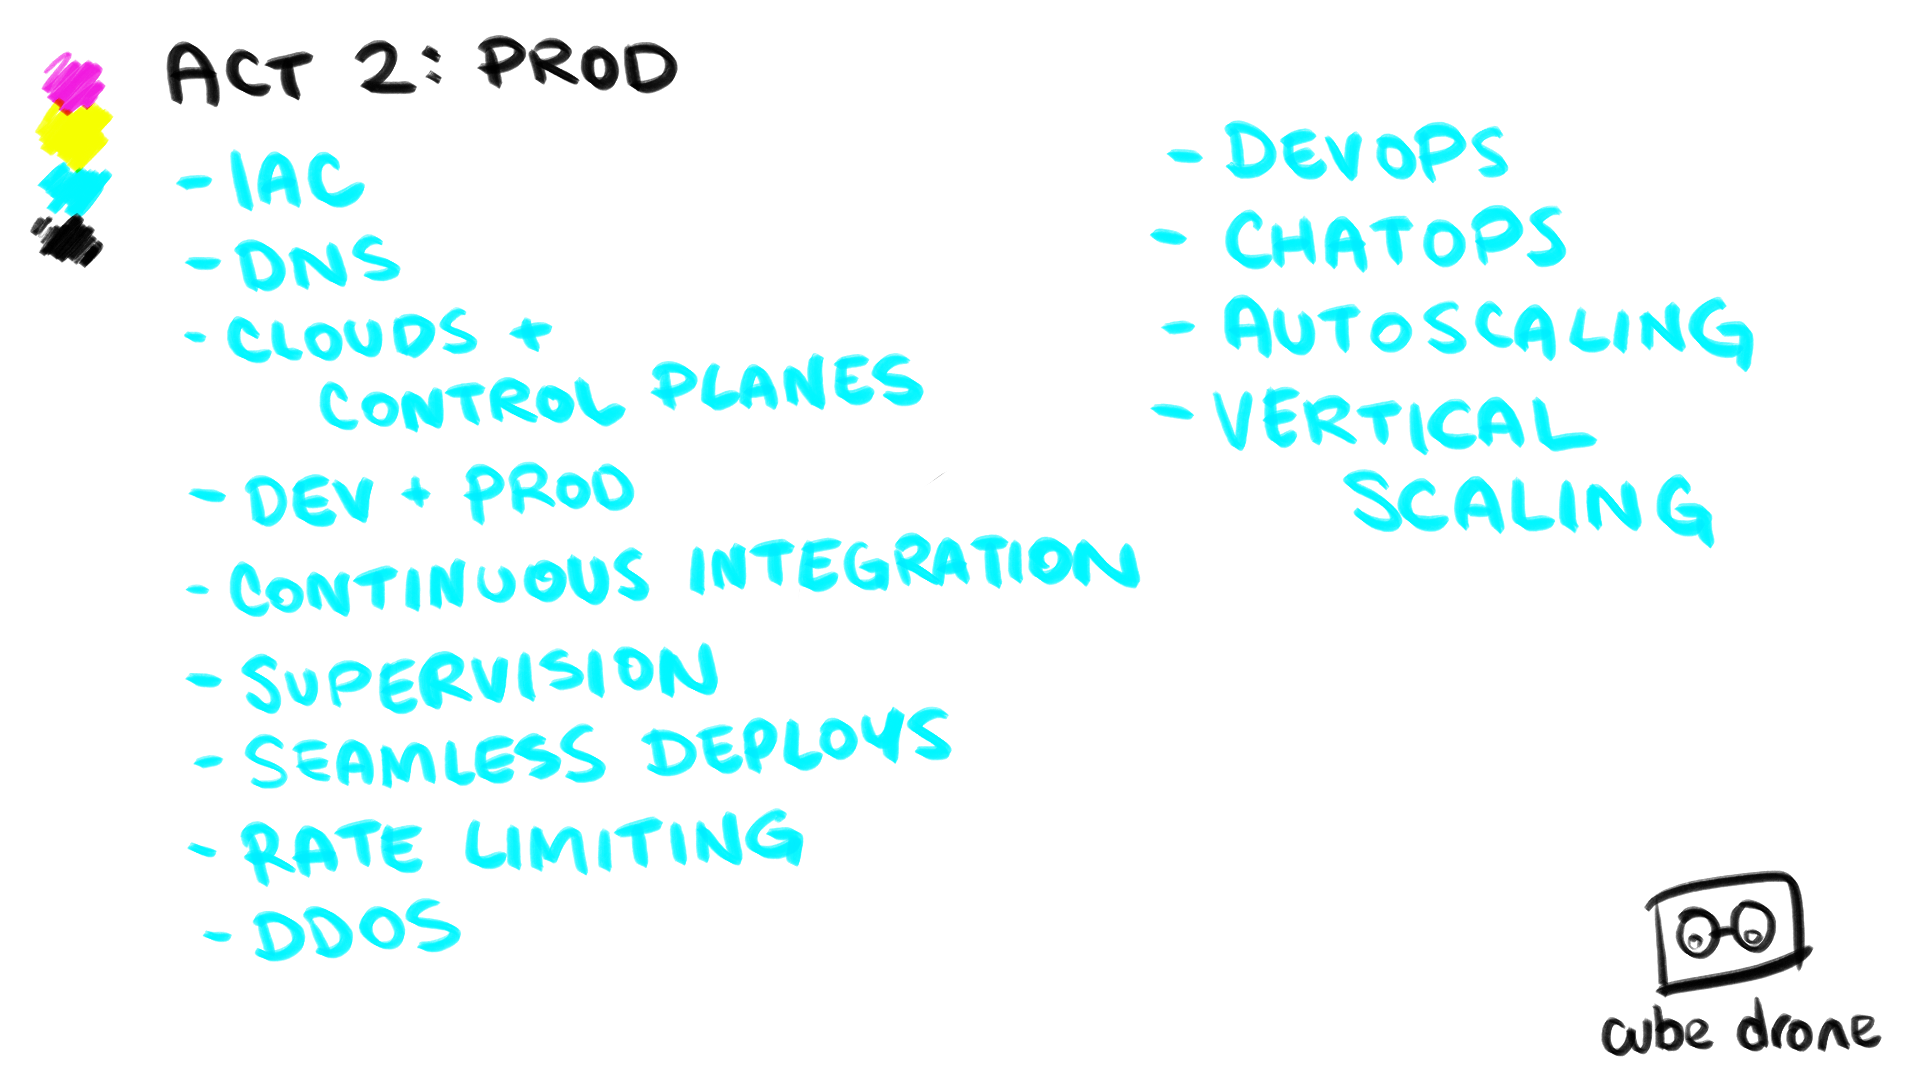 ACT 2: PROD
- IAC
- DNS
- CLOUDS +
CONTROL PLANES
- DEV + PROD
- CONTINUOUS INTEGRATION
- SUPERVISION
- SEAMLESS DEPLOYS
- RATE LIMITING
- DDOS
- DEVOPS
- CHATOPS
- AUTOSCALING
- VERTICAL
SCALING
cube drone